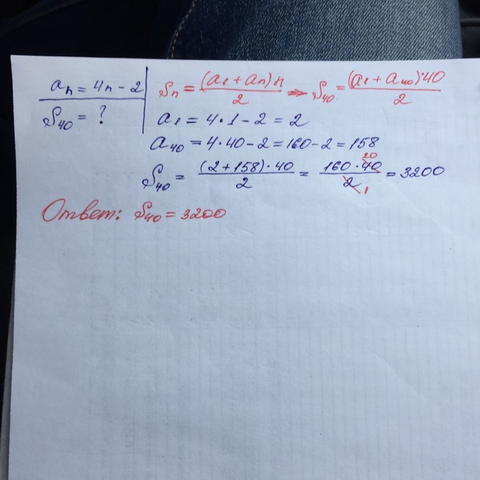 aₙ = 4n - 2
S₄₀ = ?
Sₙ = (a₁ + aₙ)·n / 2 ⇒ S₄₀ = (a₁ + a₄₀)·40 / 2
a₁ = 4·1 - 2 = 2
a₄₀ = 4·40 - 2 = 160 - 2 = 158
S₄₀ = (2 + 158)·40 / 2 = 160·40 / 2 = 3200
20
1
Ответ: S₄₀ = 3200